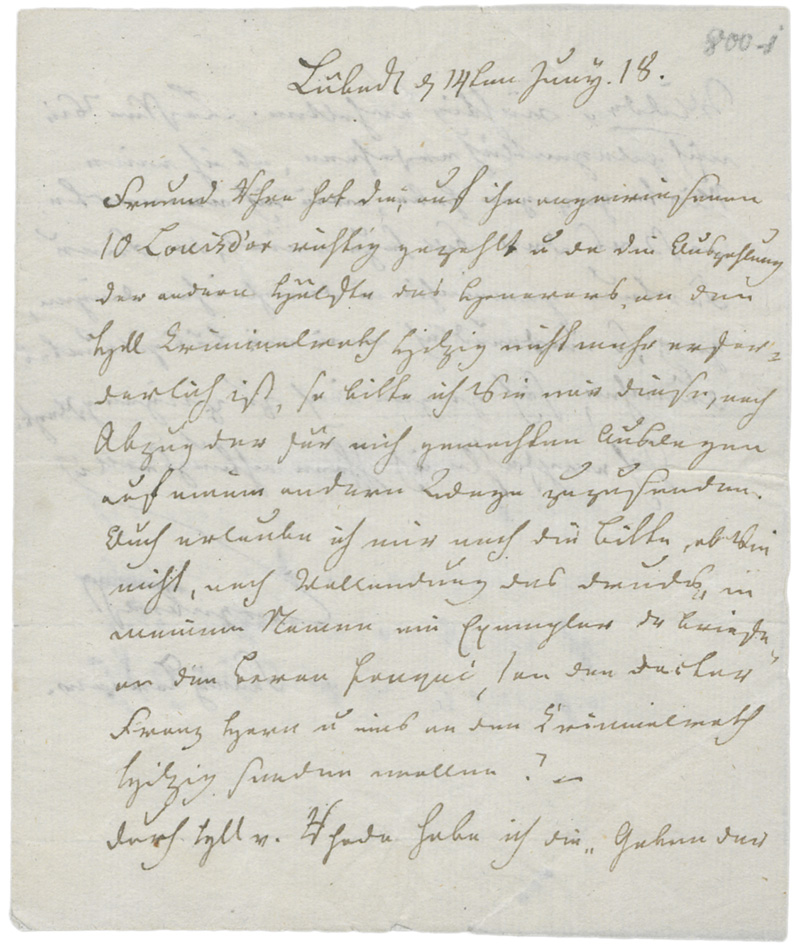 800-1
Lübeck d 14ten Juny. 18.
Freund Ihre hat die, auf ihn angewiesenen
10 Louisd'or richtig gezahlt u da die Auszahlung
der andern Hälfte des Honorars, an den
Hrn Criminalrath Hitzig nicht mehr erfor-
derlich ist, so bitte ich Sie mir diese, nach
Abzug der für mich gemachten Auslagen
auf einem andern Wege zuzusenden.
Auch erlaube ich mir noch die Bitte, ob Sie
nicht, nach Vollendung des Drucks, in
meinem Namen ein Exemplar der Briefe
an den Baron Fouqué, 1 an den Doctor
Franz Horn u eins an den Criminalrath
Hitzig senden wollen? –
durch v. habe ich die „Gaben der